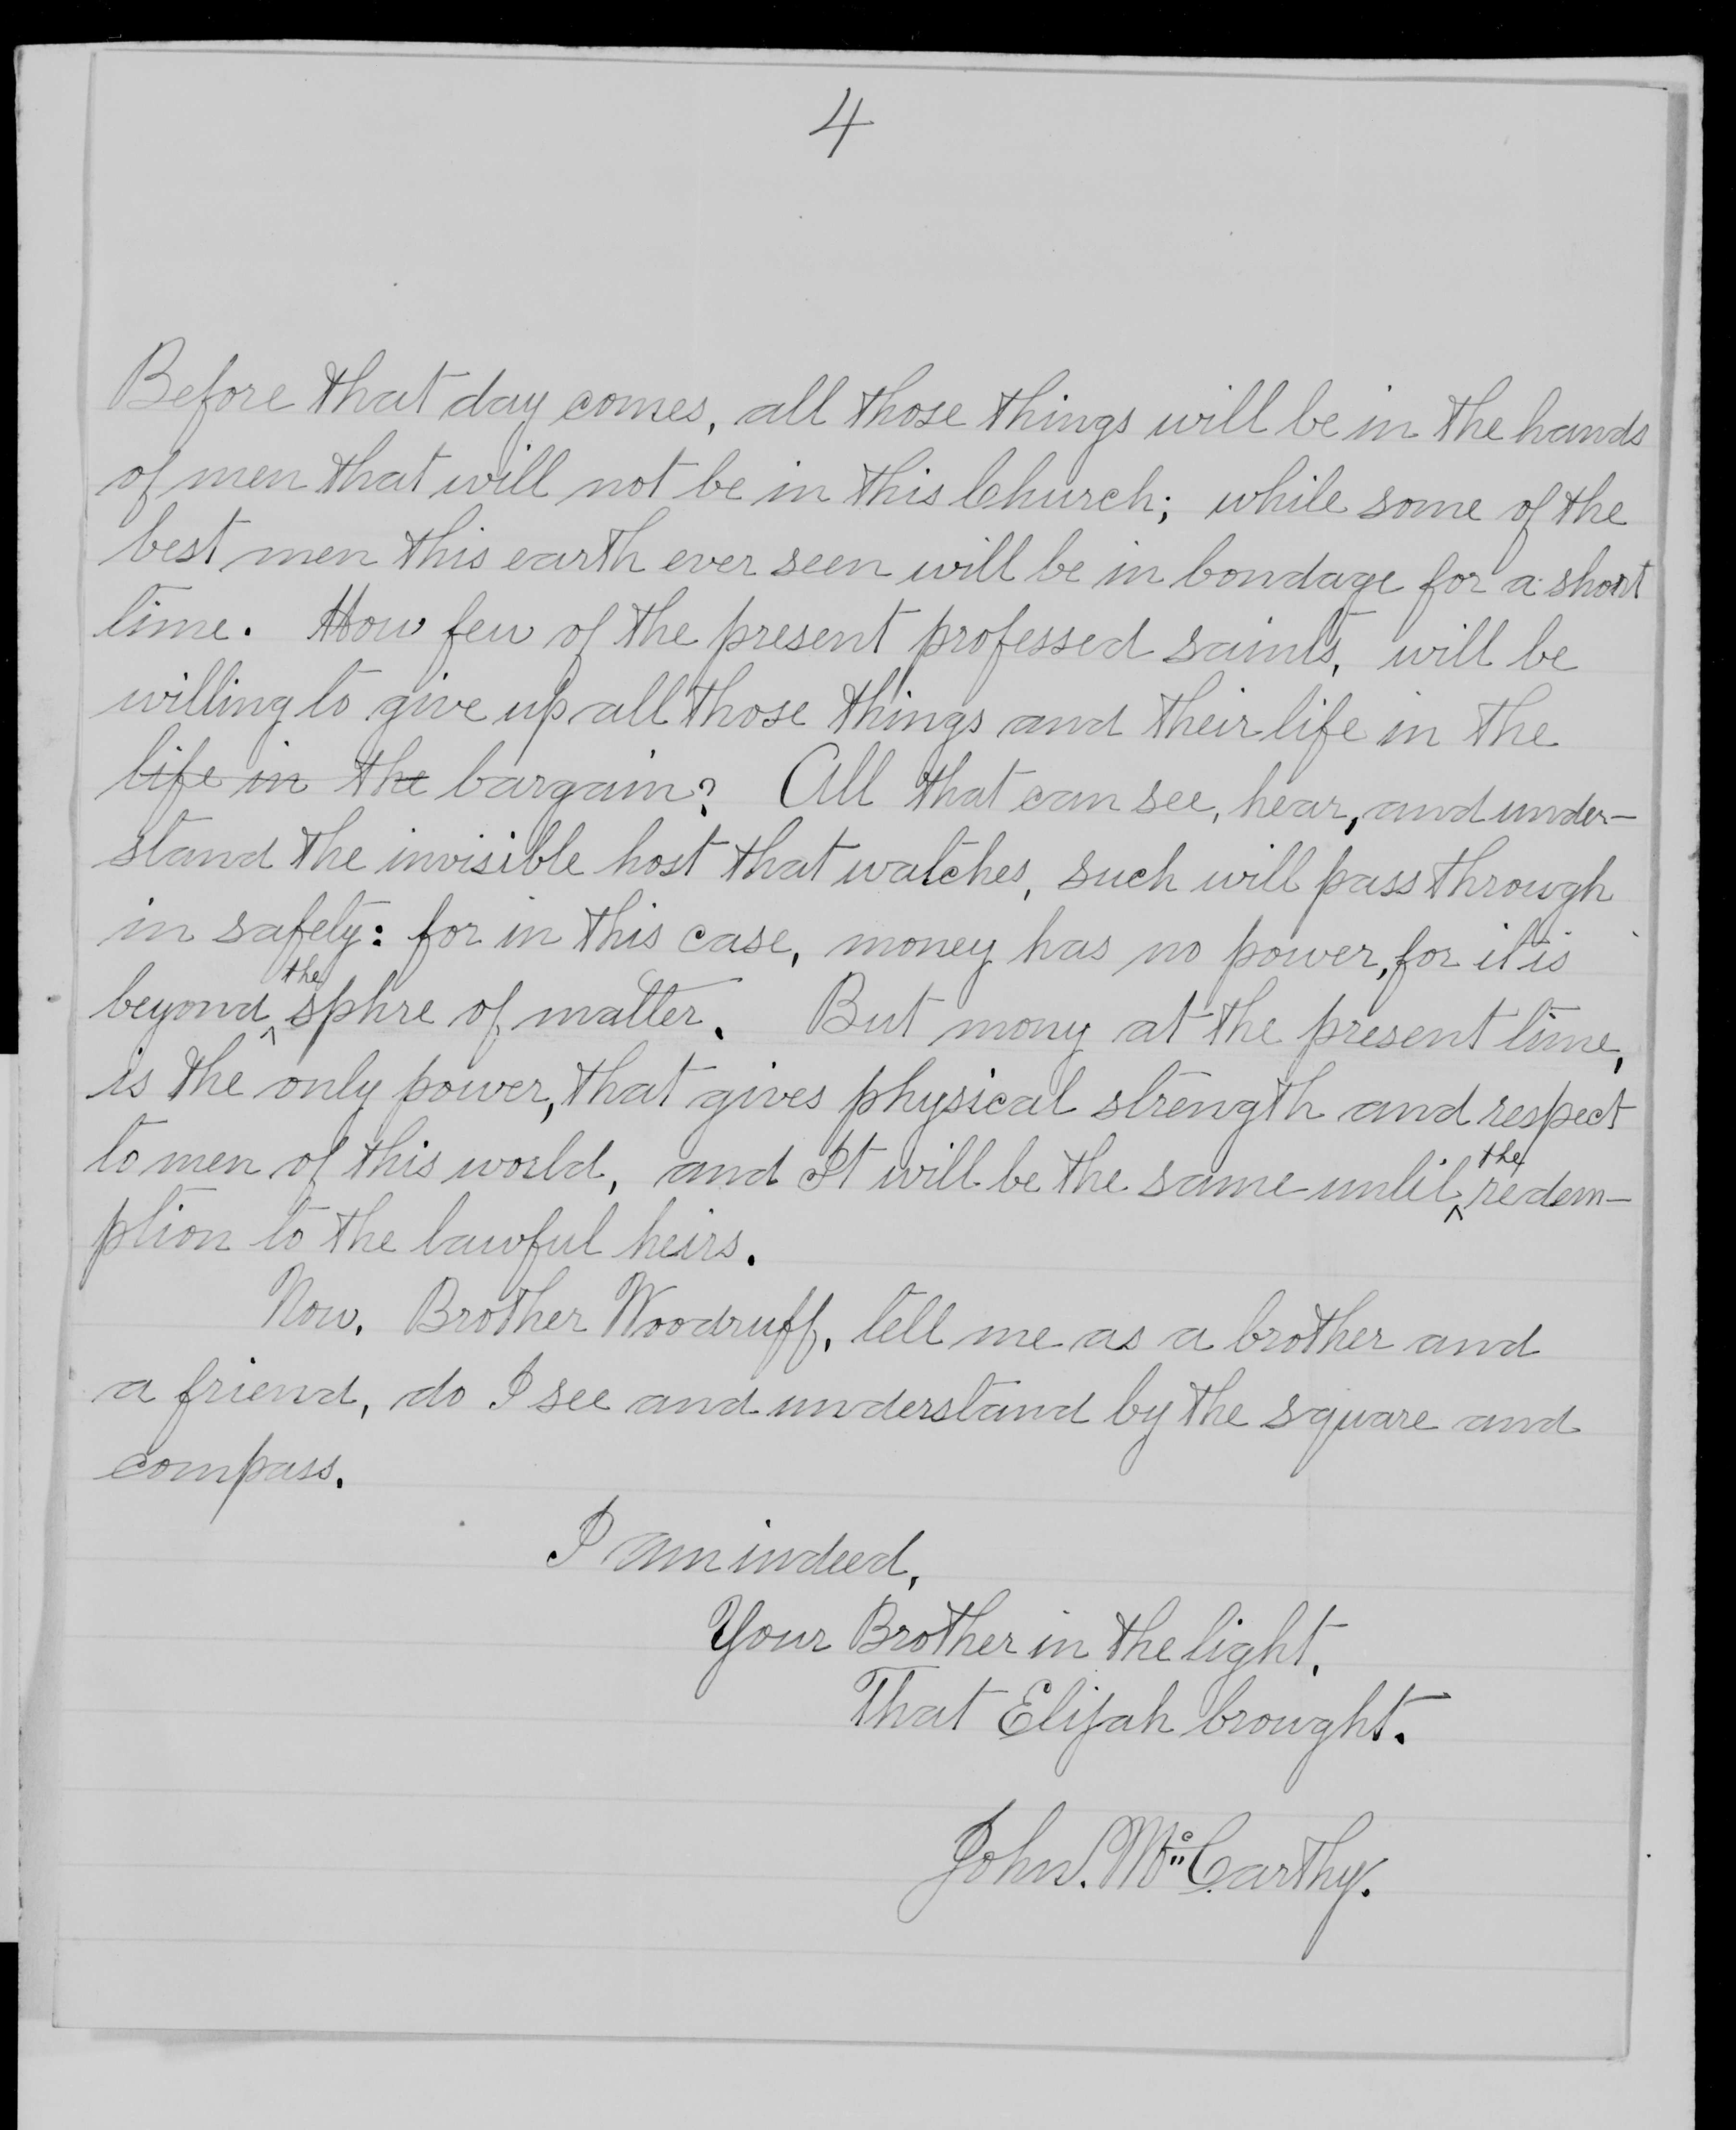 4
Before that day comes, all those things will be in the hands
of men that will not be in this Church; while some of the
best men this earth ever seen will be in bondage for a short
time. How few of the present professed saints, will be
willing to give up all those things and their life in the
life in the bargain? All that can see, hear, and under-
stand the invisible host that watches, such will pass through
in safety: for in this case, money has no power, for it is
beyond ^the sphre of matter. But mony at the present time,
is the only power, that gives physical strength and respect
to men of this world, and It will be the same until ^the redem-
ption to the lawful heirs.
Now, Brother Woodruff, tell me as a brother and
a friend, do I see and understand by the square and
compass.
I am indeed,
Your Brother in the light,
That Elijah brought.
John. McCarthy.